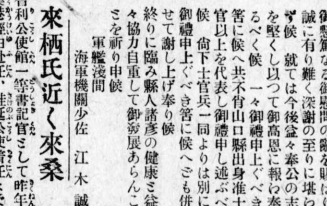 誠に有り難く深謝の至りに堪ら
ず候　就ては今後益々奉公の志
を堅くし以つて御高恩に報ひ奉
るべく候　一々御禮申上ぐべき
筈に候へ共不肖山口縣出身准士
官以上を代表し御禮申し述ぶべく
候　尙下士官兵一同よりは別に
御禮申上ぐべき筈に候へども併
せて謝し上げ奉り候
終りに臨み縣人諸彦の健康と益
々協力自重して御發展あらんこ
とを祈り申候
軍艦淺間
海軍機關少佐　江木　誠
來栖氏近く來桑
利公使館一等書記官として昨年